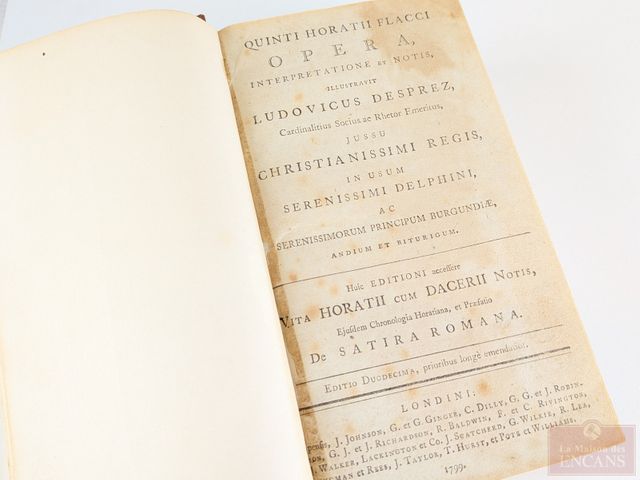 QUINTI HORATII FLACCI
OPERA,
INTERPRETATIONE ET NOTIS,
ILLUSTRAVIT
LUDOVICUS DESPREZ,
Cardinalitius Socius ac Rhetor Emeritus,
JUSSU
CHRISTIANISSIMI REGIS,
IN USUM
SERENISSIMI DELPHINI,
AC
SERENISSIMORUM PRINCIPUM BURGUNDIÆ,
ANDIUM ET BITURIGUM.
Huic EDITIONI accessere
VITA HORATII CUM DACERII NOTIS,
Ejusdem Chronologia Horatiana, et Præfatio
De SATIRA ROMANA.
EDITIO DUODECIMA, prioribus longè emendatior.
LONDINI:
J. JOHNSON, G. et G. GINGER, C. DILLY, G. G. et J. ROBIN-
SON, G. J. et J. RICHARDSON, R. BALDWIN, F. et C. RIVINGTON,
J. WALKER, LACKINGTON et Co. J. SCATCHERD, G. WILKIE, R. LEA,
et REES, J. TAYLOR, T. HURST, et POTE et WILLIAMS.
1799.
La Maison des
ENCANS